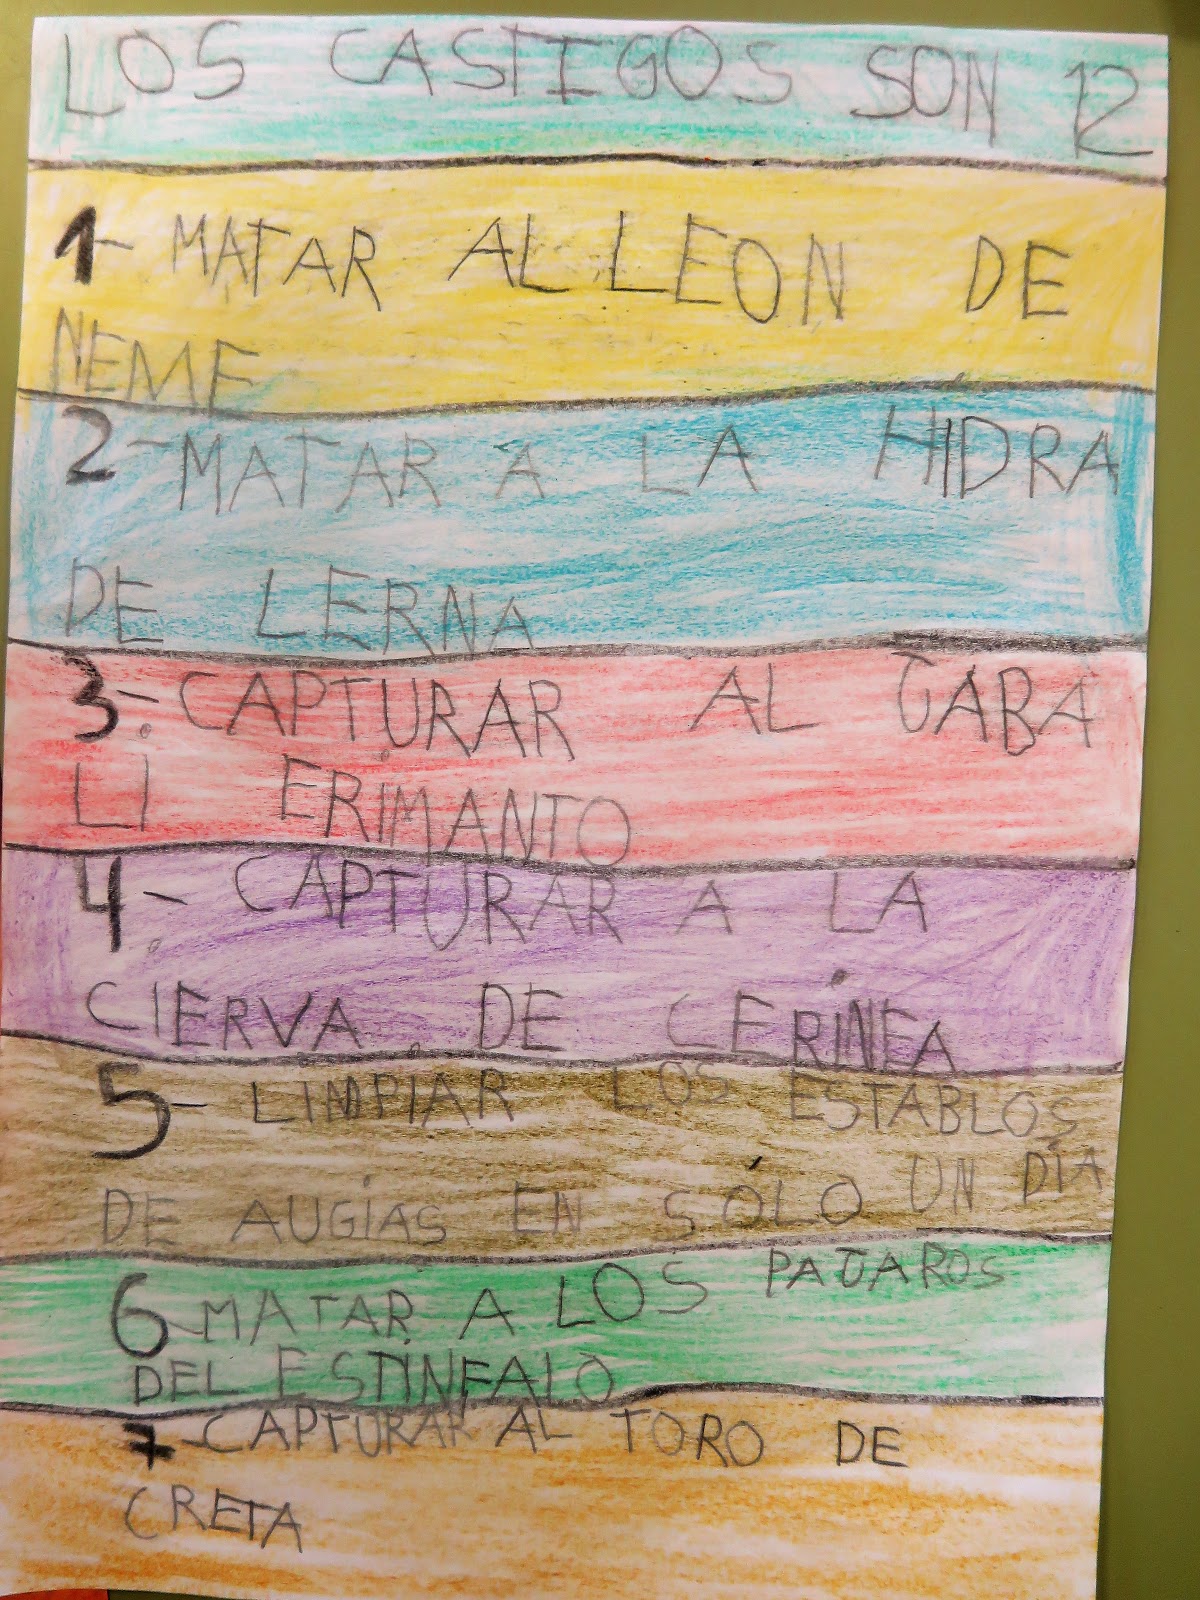 LOS CASTIGOS SON 12
1- MATAR AL LEON DE
NEME
2- MATAR A LA HIDRA
DE LERNA
3- CAPTURAR AL JABA
LI ERIMANTO
4- CAPTURAR A LA
CIERVA DE CERINEA
5- LIMPIAR LOS ESTABLOS
DE AUGIAS EN SÓLO UN DÍA
6-MATAR A LOS PAJAROS
DEL ESTINFALO
7-CAPTURAR AL TORO DE
CRETA